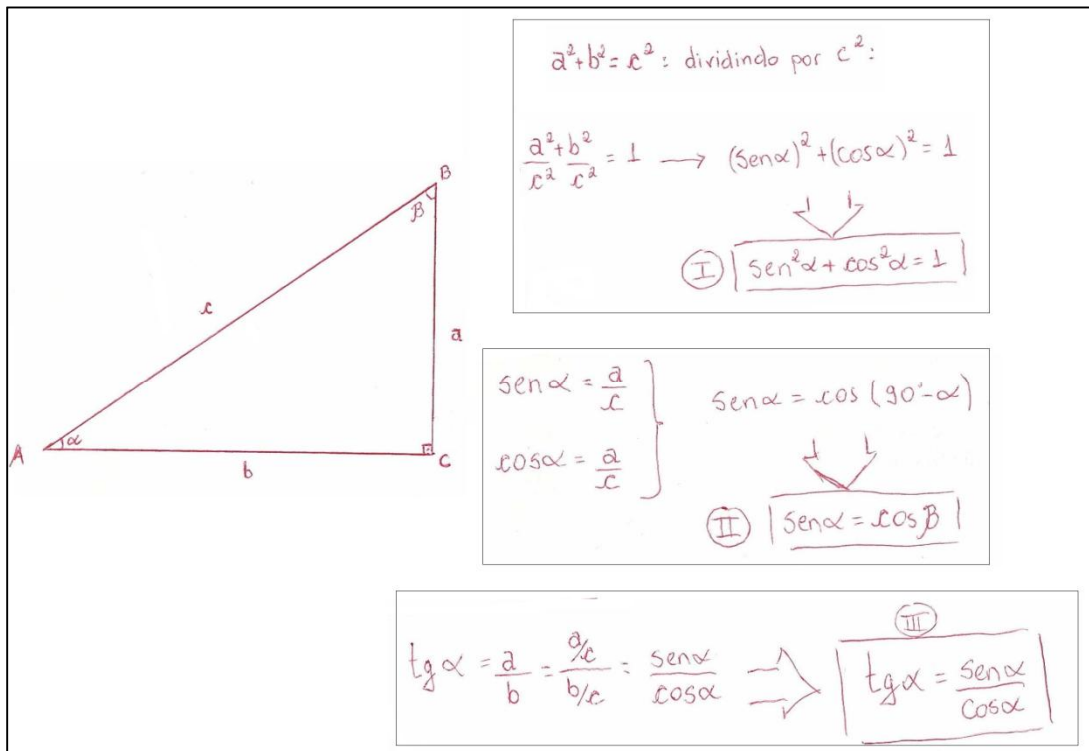 a²+b²=c²: dividindo por c²:
a²/c² + b²/c² = 1 → (senα)²+(cosα)²=1
I sen²α+cos²α=1
B
β
c
a
A α
b
C
senα = a/c
cosα = a/c
senα = cos(90°-α)
II senα = cosβ
III
tgα = a/b = a/c / b/c = senα/cosα ⇒ tgα = senα/cosα